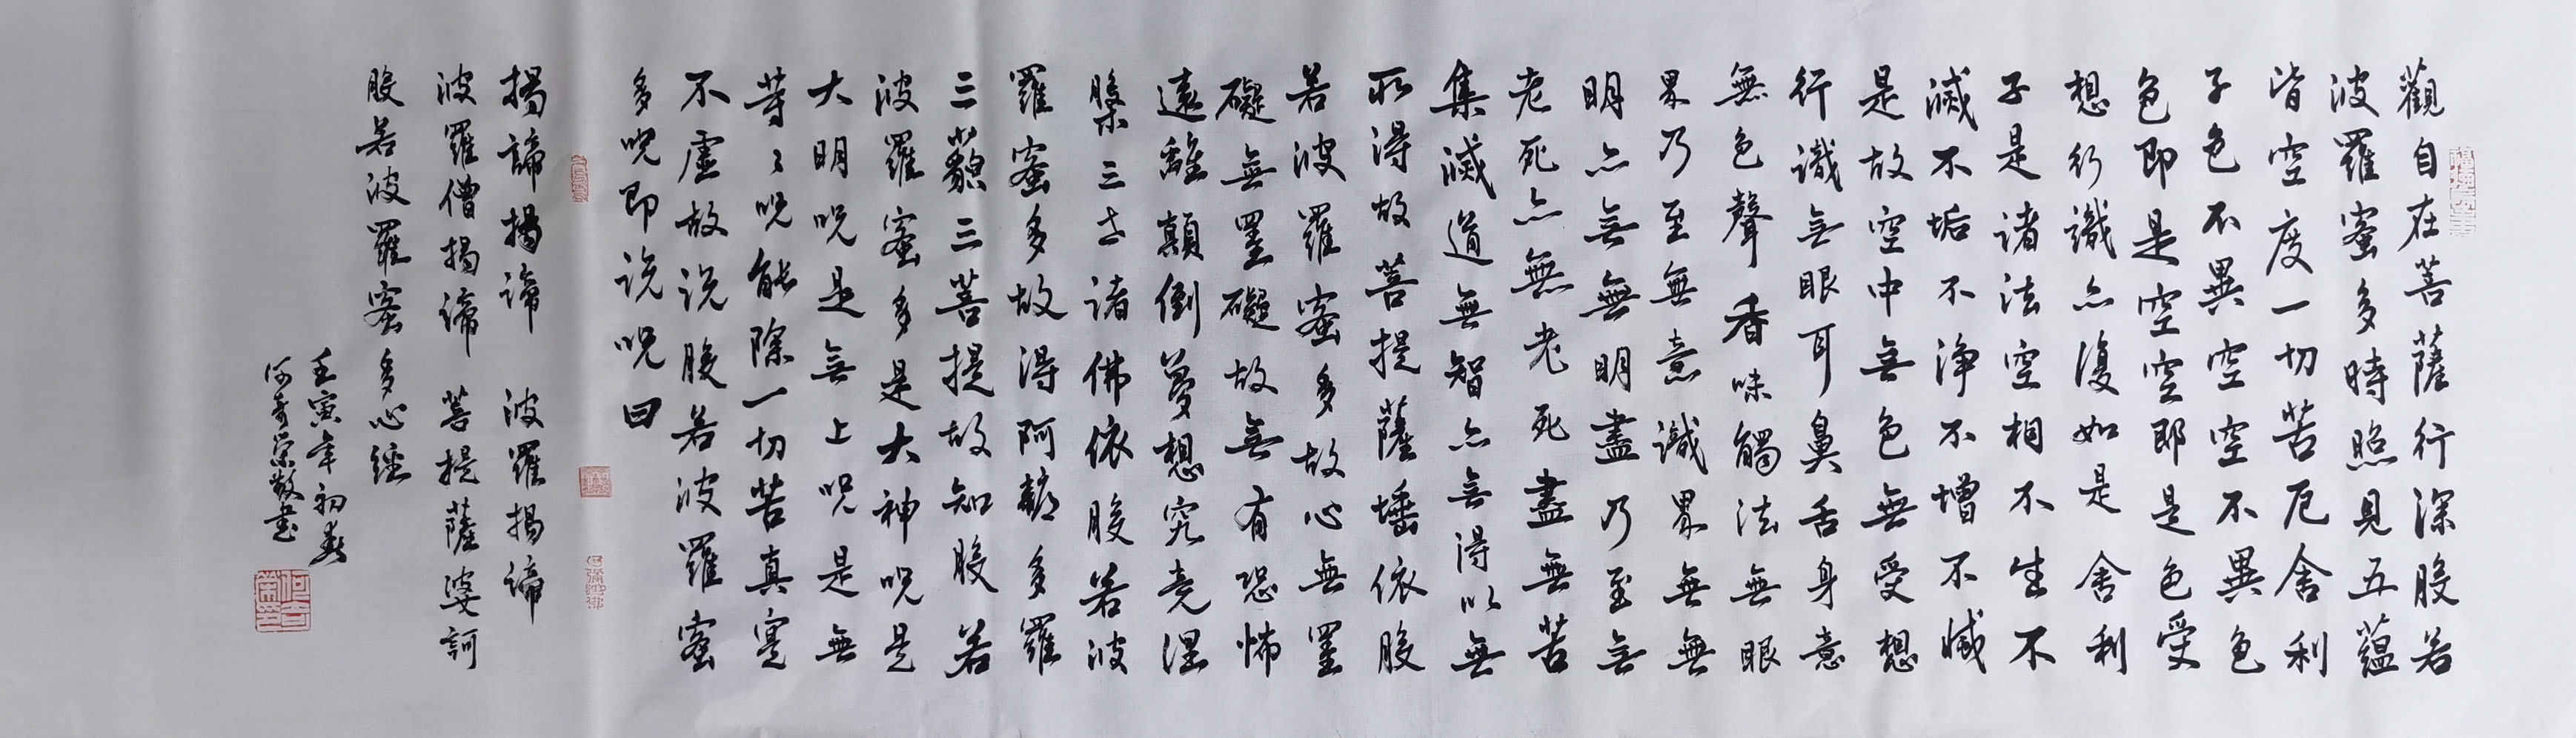 觀自在菩薩行深般若
波羅蜜多時照見五蘊
皆空度一切苦厄舍利
子色不異空空不異色
色即是空空即是色受
想行識亦復如是舍利
子是諸法空相不生不
滅不垢不淨不增不減
是故空中無色無受想
行識無眼耳鼻舌身意
無色聲香味觸法無眼
界乃至無意識界無無
明亦無無明盡乃至無
老死亦無老死盡無苦
集滅道無智亦無得以無
所得故菩提薩埵依般
若波羅蜜多故心無罣
礙無罣礙故無有恐怖
遠離顛倒夢想究竟涅
槃三世諸佛依般若波
羅蜜多故得阿耨多羅
三藐三菩提故知般若
波羅蜜多是大神咒是
大明咒是無上咒是無
等々咒能除一切苦真實
不虛故說般若波羅蜜
多咒即說咒曰
揭諦揭諦 波羅揭諦
波羅僧揭諦 菩提薩婆訶
般若波羅蜜多心經
壬寅年初春
何奇榮敬書